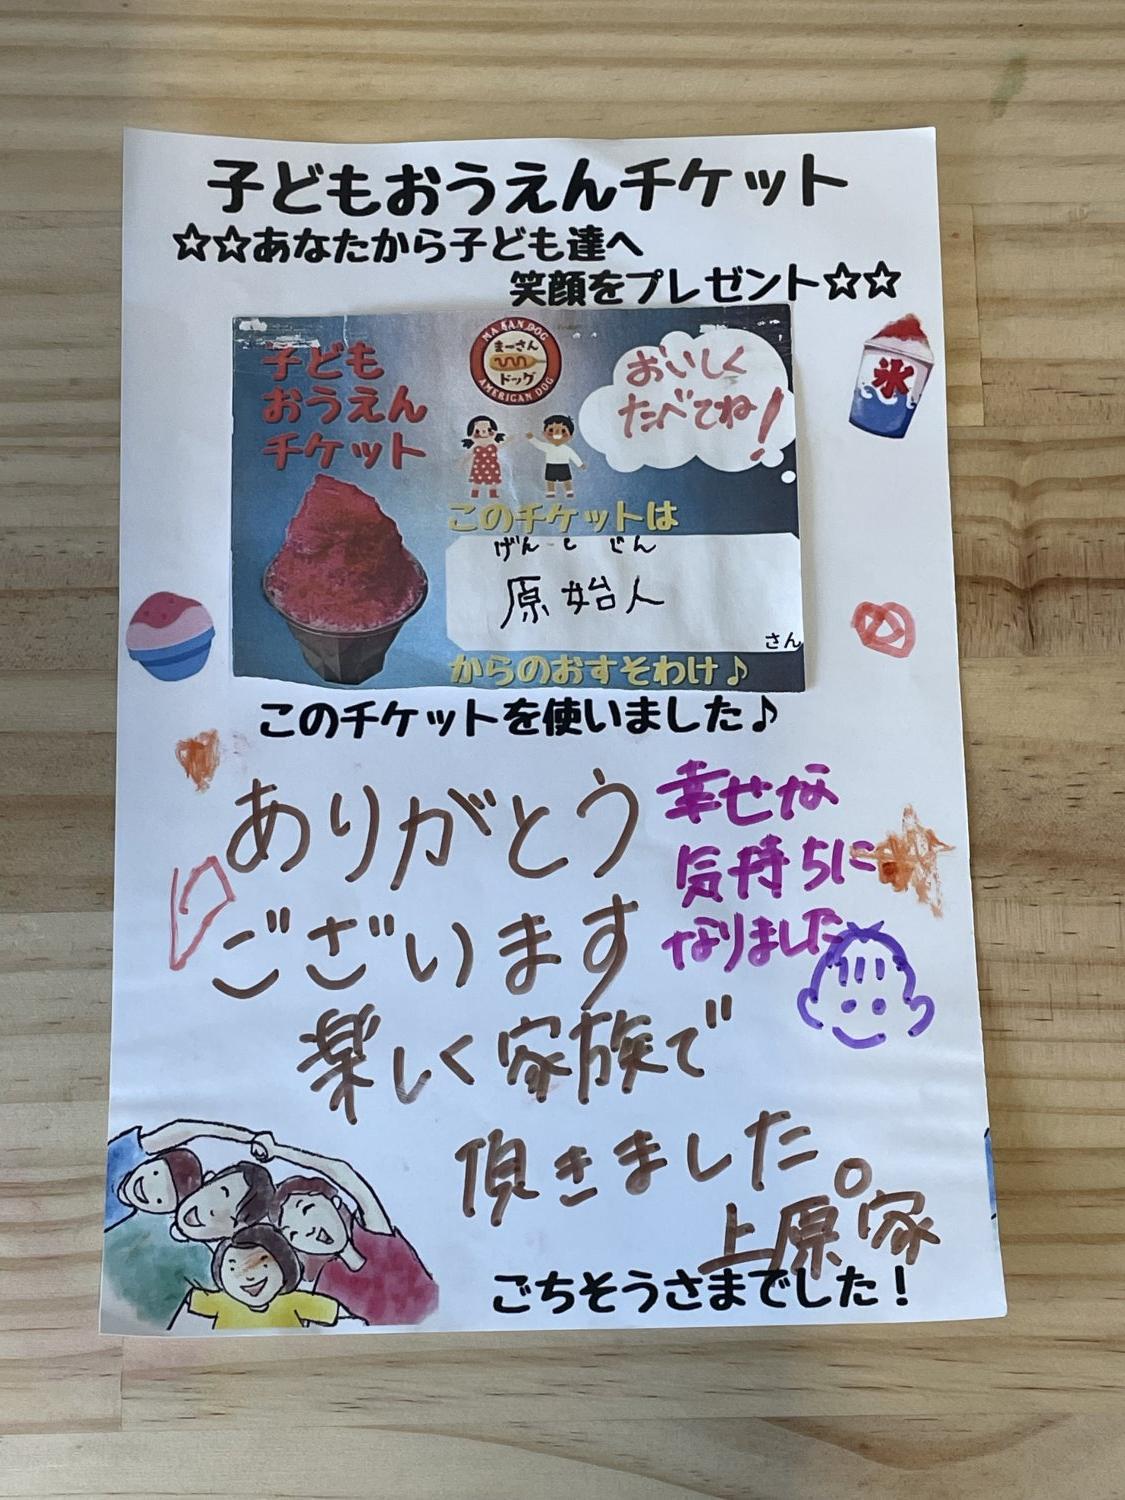 子どもおうえんチケット
☆☆あなたから子ども達へ
笑顔をプレゼント☆☆
子ども
おうえん
チケット
MA SAN DOG
まーさん
ドッグ
AMERICAN DOG
おいしく
たべてね!
このチケットは
げんしじん
原始人
さん
からのおすそわけ♪
氷
このチケットを使いました♪
ありがとう
ございます
楽しく家族で
頂きました。
上原家
幸せな
気持ちに
なりました
ごちそうさまでした!